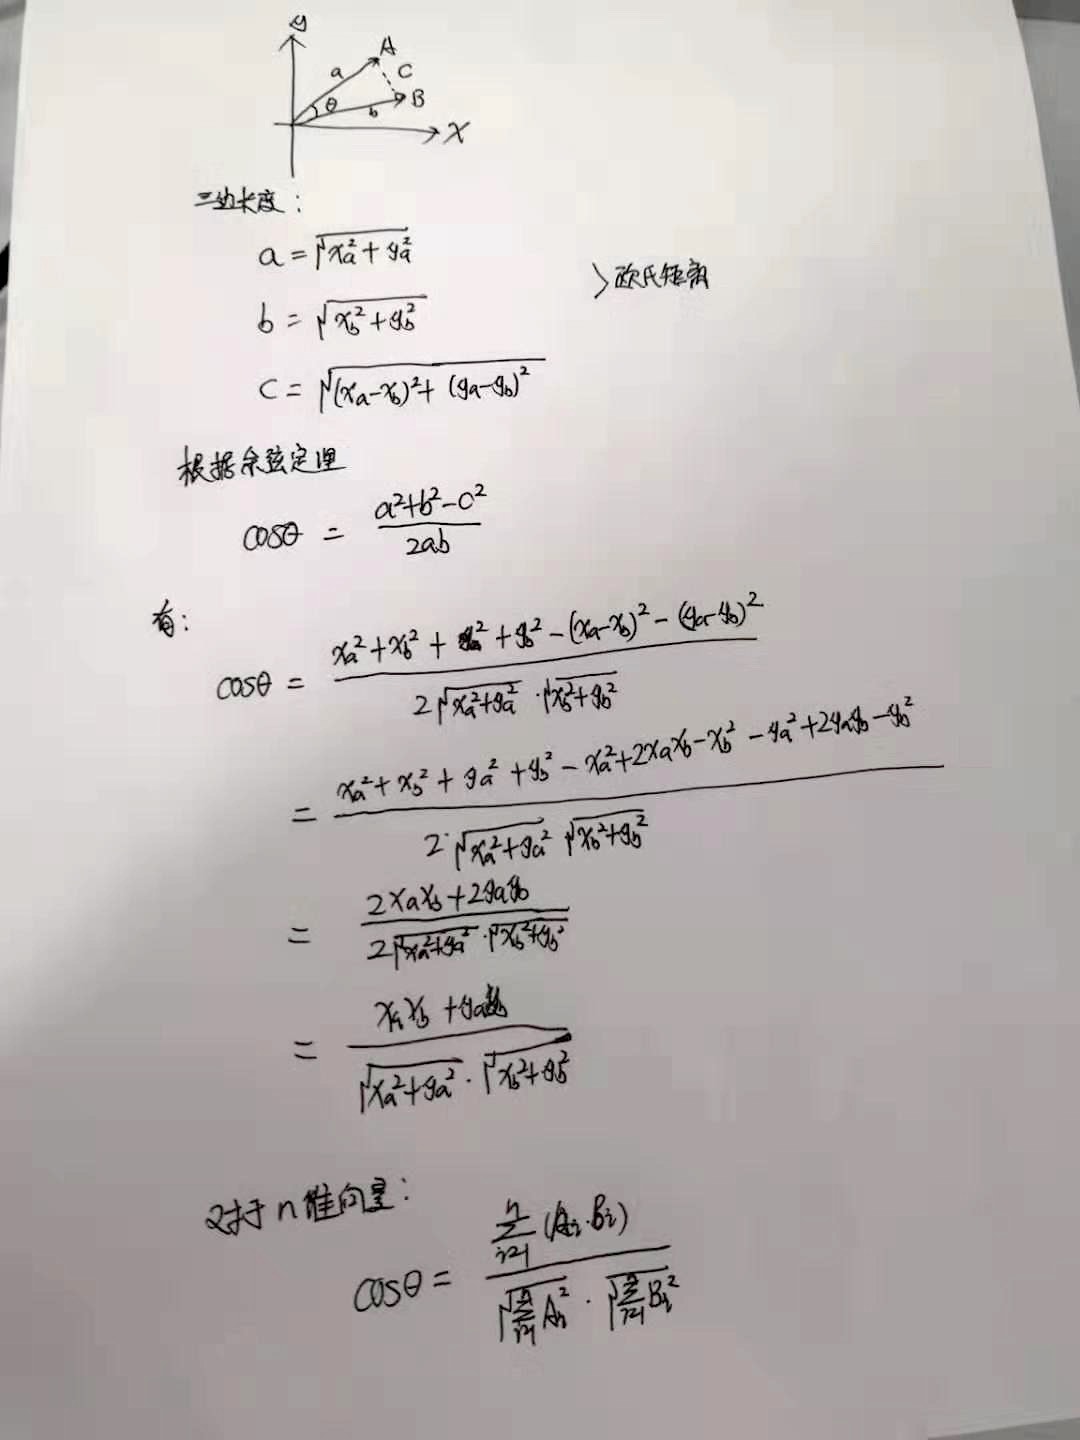 y
A
a
C
θ
B
b
X
三边长度：
a = √(xₐ² + yₐ²)
>欧氏距离
b = √(x_b² + y_b²)
C = √((xₐ-x_b)² + (yₐ-y_b)²)
根据余弦定理
cosθ = (a²+b²-c²) / 2ab
有：
cosθ = (xₐ²+x_b²+yₐ²+y_b²-(xₐ-x_b)²-(yₐ-y_b)²) / (2√(xₐ²+yₐ²)·√(x_b²+y_b²))
= (xₐ²+x_b²+yₐ²+y_b²-xₐ²+2xₐx_b-x_b²-yₐ²+2yₐy_b-y_b²) / (2·√(xₐ²+yₐ²) √(x_b²+y_b²))
= (2xₐx_b+2yₐy_b) / (2√(xₐ²+yₐ²)·√(x_b²+y_b²))
= (xₐx_b+yₐy_b) / (√(xₐ²+yₐ²)·√(x_b²+y_b²))
对于n维向量：
cosθ = (∑ⁿᵢ₌₁(Aᵢ·Bᵢ)) / (√(∑ⁿᵢ₌₁Aᵢ²)·√(∑ⁿᵢ₌₁Bᵢ²))